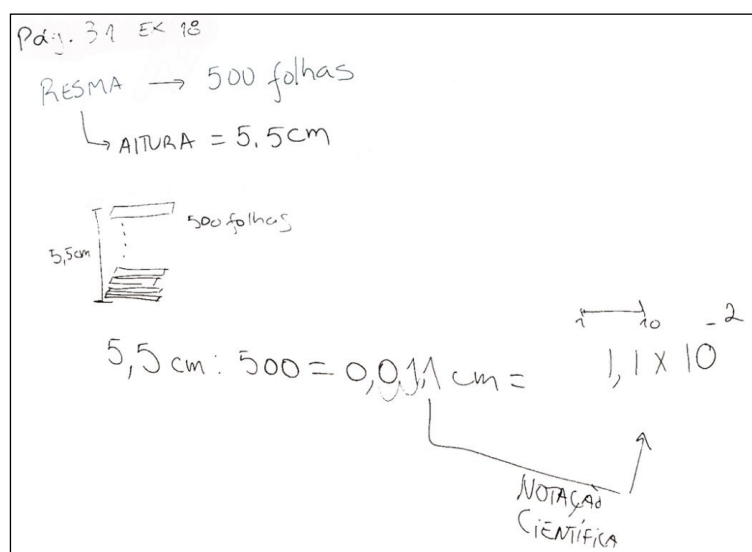 Pág. 31 EX 18
RESMA → 500 folhas
→ AlTURA = 5,5cm
500 folhas
5,5cm
1 10
5,5 cm : 500 = 0,011 cm = 1,1 x 10⁻²
NOTAÇÃO
CIENTÍFICA